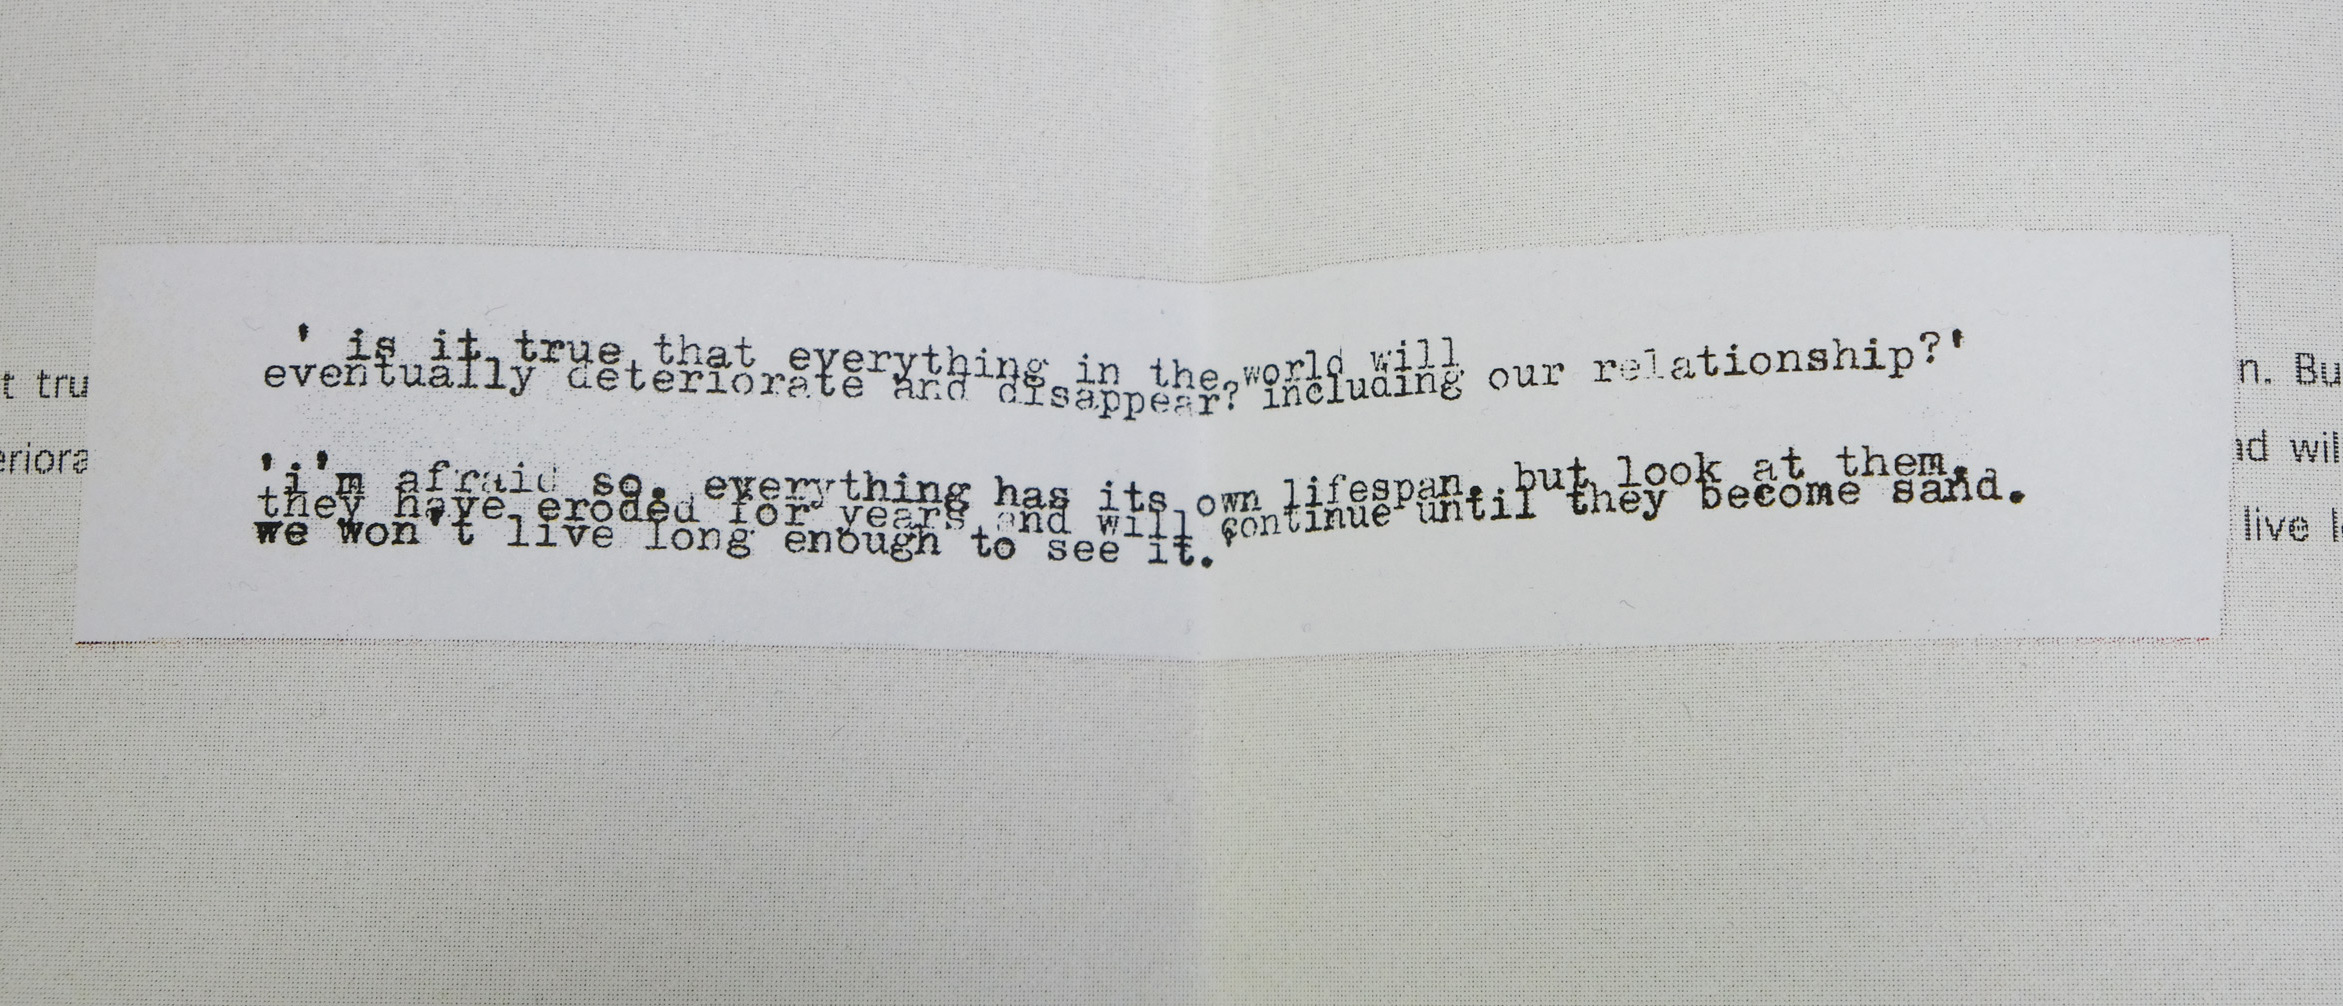 ' is it true that everything in the world will
eventually deteriorate and disappear? including our relationship?'
'i'm afraid so. everything has its own lifespan. but look at them,
they have eroded for years and will continue until they become sand.
we won't live long enough to see it.'
t tru
eriora
n. Bu
nd wil
live l